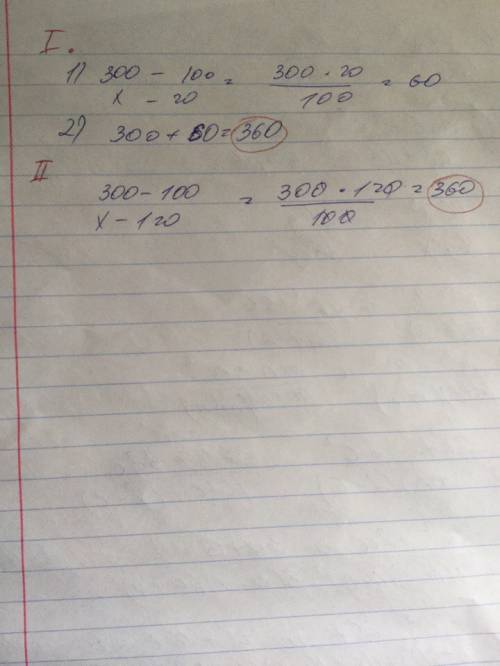 I.
1) 300 - 100 = 300 · 20 = 60
x - 20 100
2) 300 + 60 = 360
II
300 - 100 = 300 · 120 = 360
x - 120 100